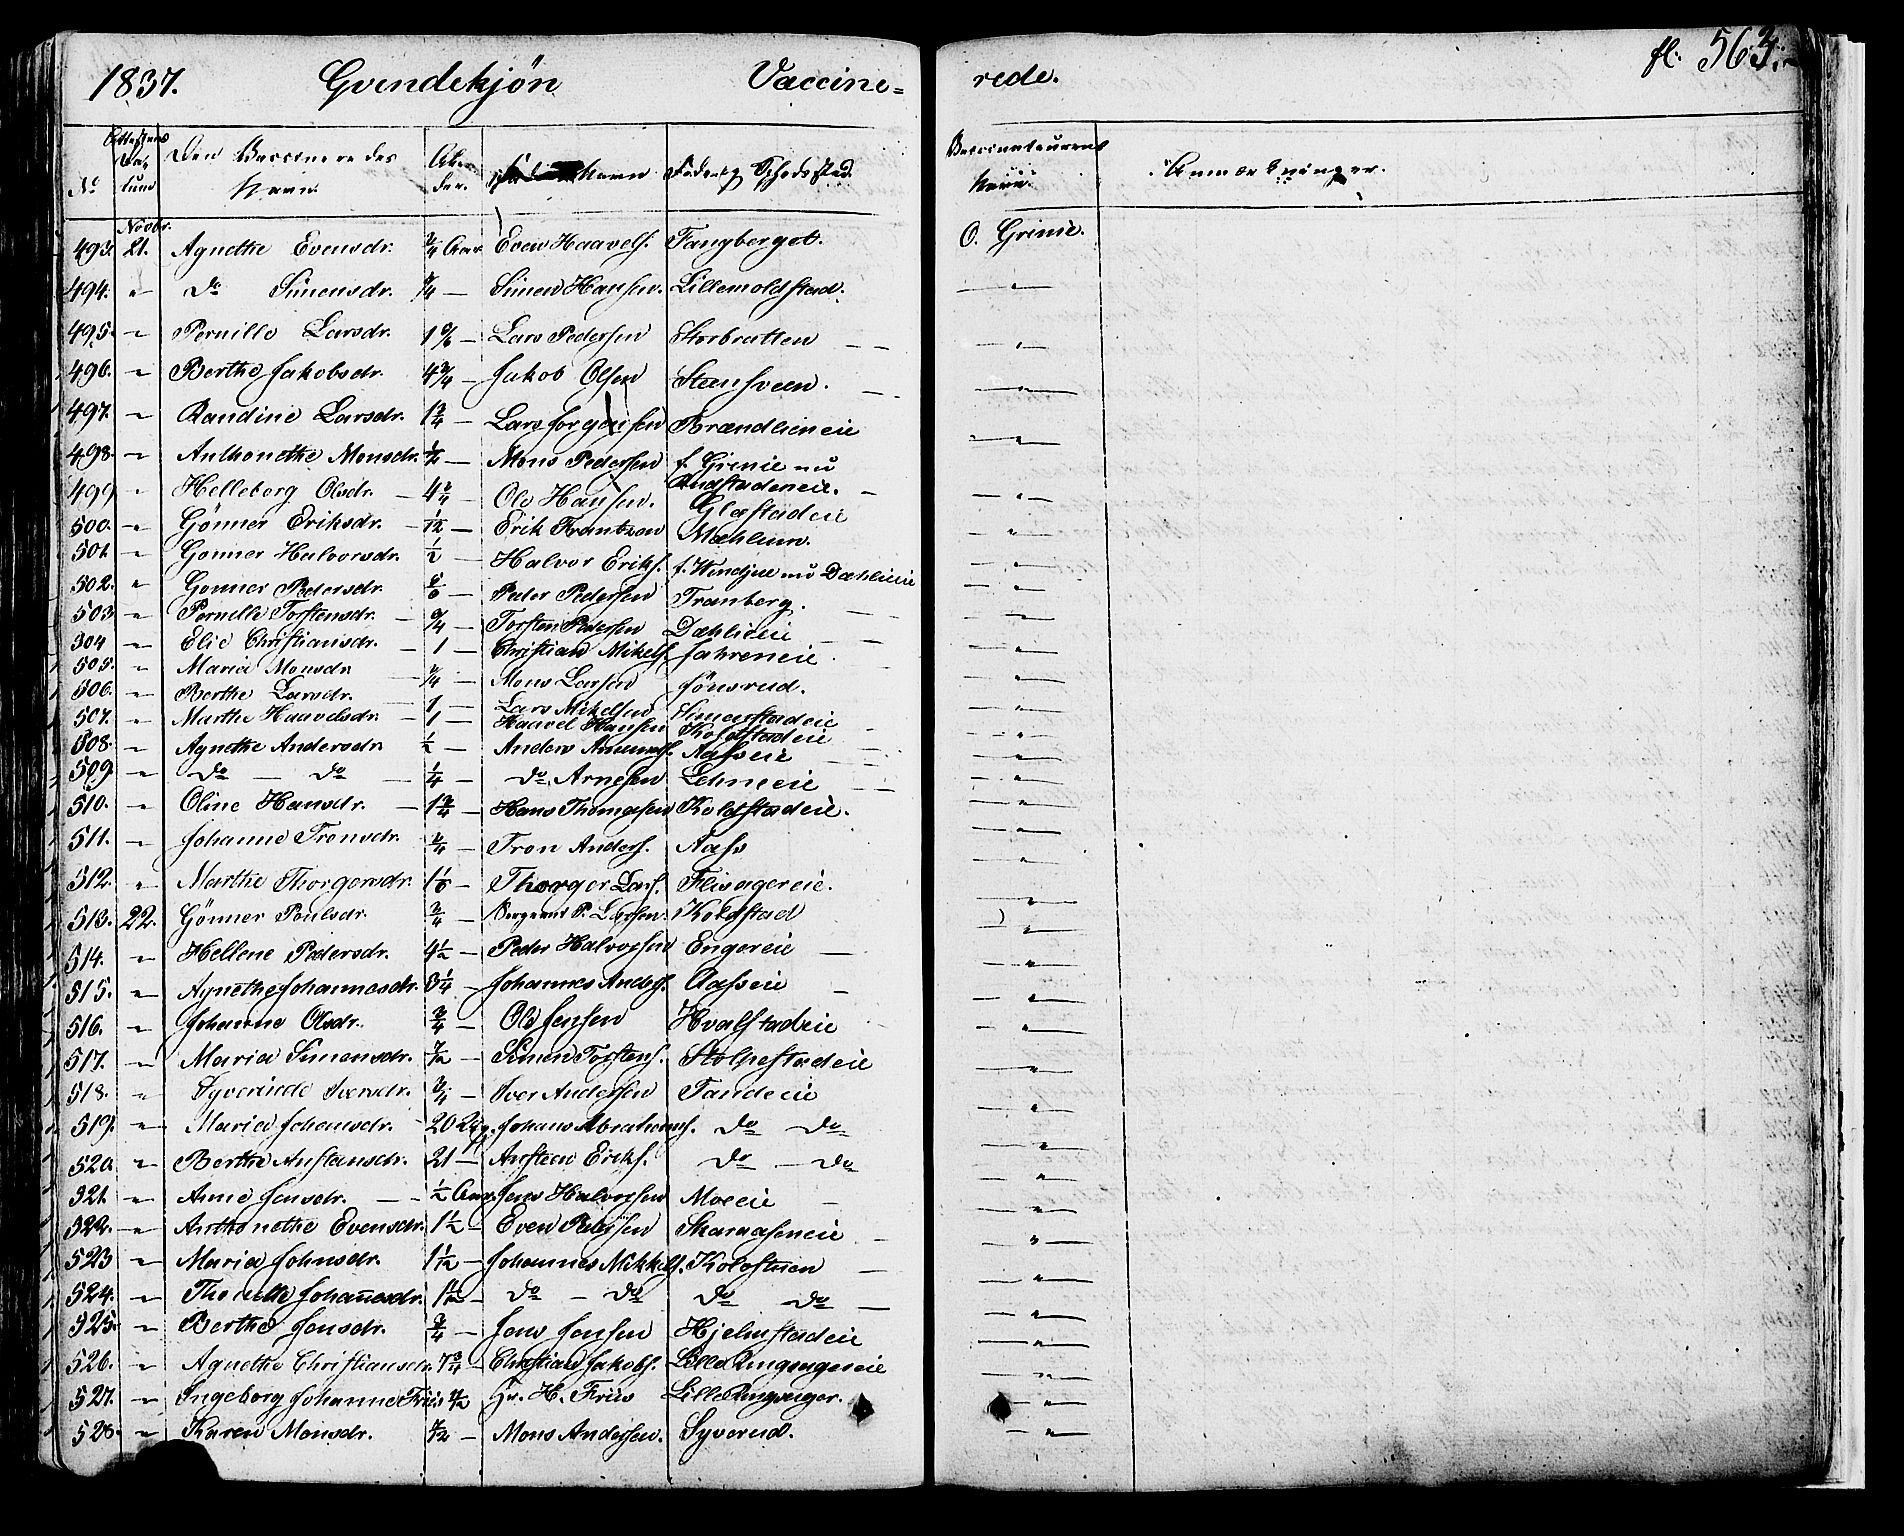 1837. Qvindekjön Vaccine=rede. fl. 563.
No Attestens Datum Den Vaccineredes Navn. Alder. Navn Fader og Opholdssted. Vaccinateurens Navn. Anmærkninger.
Novbr.
493. 21. Agnethe Evensdr. 3/4 Aar Even Haavels. Fangberget. O. Grinie.
494. " Do Simensdr. 3/4 — Simen Hansen. Lillemoldstad. — " —
495. " Pernille Larsdr. 1 — Lars Pedersen Storbratten — " —
496. " Berthe Jakobsdr. 4 3/4 — Jakob Olsen Steensveen. — " —
497. " Randine Larsdr. 1 3/4 — Lars Jorgensen Brændlieneie — " —
498. " Anthonethe Monsdr. 1/2 — Mons Pedersen f. Grinie nu Rudstadeneie. — " —
499 " Helleborg Olsdr. — 4 3/4 — Ole Hansen. Glæstadeie — " —
500. " Gönner Eriksdr. — 1/12 — Erik Frantzen Mæhlum. — " —
501. " Gonner Halvorsdr. 1/2 — Halvor Eriks. f. Windjue nu Dæhlieie — " —
502. " Gonner Pedersdr. Peder Pedersen Tranberg. — " —
503. " Pernille Torstensdr. — 3/4 — Torsten Pedersen Dæhlieeie — " —
504 " Elie Christiansdr. — 1 — Christian Mikels. Jahreneie — " —
505. " Maria Monsdr. — 1/4 — Mons Larsen Jönsrud. — " —
506. " Berthe Larsdr. — 1 — Lars Mikelsen Simenstadeie — " —
507. " Marthe Haavelsdr. — 1 — Haavel Hansen Kolostadeie — " —
508. " Agnethe Andersdr. 1/2 — Anders Aasseie — " —
509 " Do — Do — 1/4 — Do Arnesen Lehneeie — " —
510. " Oline Hansdr. — 1 3/4 — Hans Thomasen Kolostadeie. — " —
511. " Johanne Tronsdr. 3/4 — Tron Anders. Aass — " —
512. " Marthe Thorgersdr. 1 1/6 — Thorger Lars. Flisagereie. — " —
513. 22. Gönner Poulsdr. 3/4 — Sergeant P. Larsen. Kolostad — " —
514. " Hellene Pedersdr. 4 1/2 — Peder Halvorsen Engereie — " —
515. " Agnethe Johannesdr. 3 1/4 — Johannes Anders. Aasseie — " —
516. " Johanne Olsdr. 3/4 — Ole Jensen Hvalstadeie — " —
517. " Maria Simensdr. 7/12 — Simen Torstens. Stolpestadeie — " —
518. " Syverinde Iversdr. 3/4 — Iver Andersen Tandeeie — " —
519. " Maria Johansdr. 20 Johans Abrahams. Do Do — " —
520. " Berthe Anstensdr. 21 — Ansteen Eriks. Do — Do — " —
521. " Anne Jensdr. — 1/2 Aar Jens Halvorsen Moeeie — " —
522. " Anthonethe Evensdr. 1 1/2 — Even Pedersen Skaraaseneie — " —
523 " Maria Johnsdr. 1 1/12 — Johannes Mikkels. Kolostuen — " —
524. " Thorine Johanesdr. 1 1/12 — Do — Do Do Do — " —
525. " Berthe Jensdr. 3/4 — Jens Jensen Hjelmstadeie — " —
526. " Agnethe Christiansdr. 7 3/4 — Christian Jakobs. Lille Ringsagereie — " —
527. " Ingeborg Johanne Friis Hr. H. Friis Lille Ringsager. — " —
528. " Karen Monsdr. 7/12 — Mons Andersen. Syverud. — " —